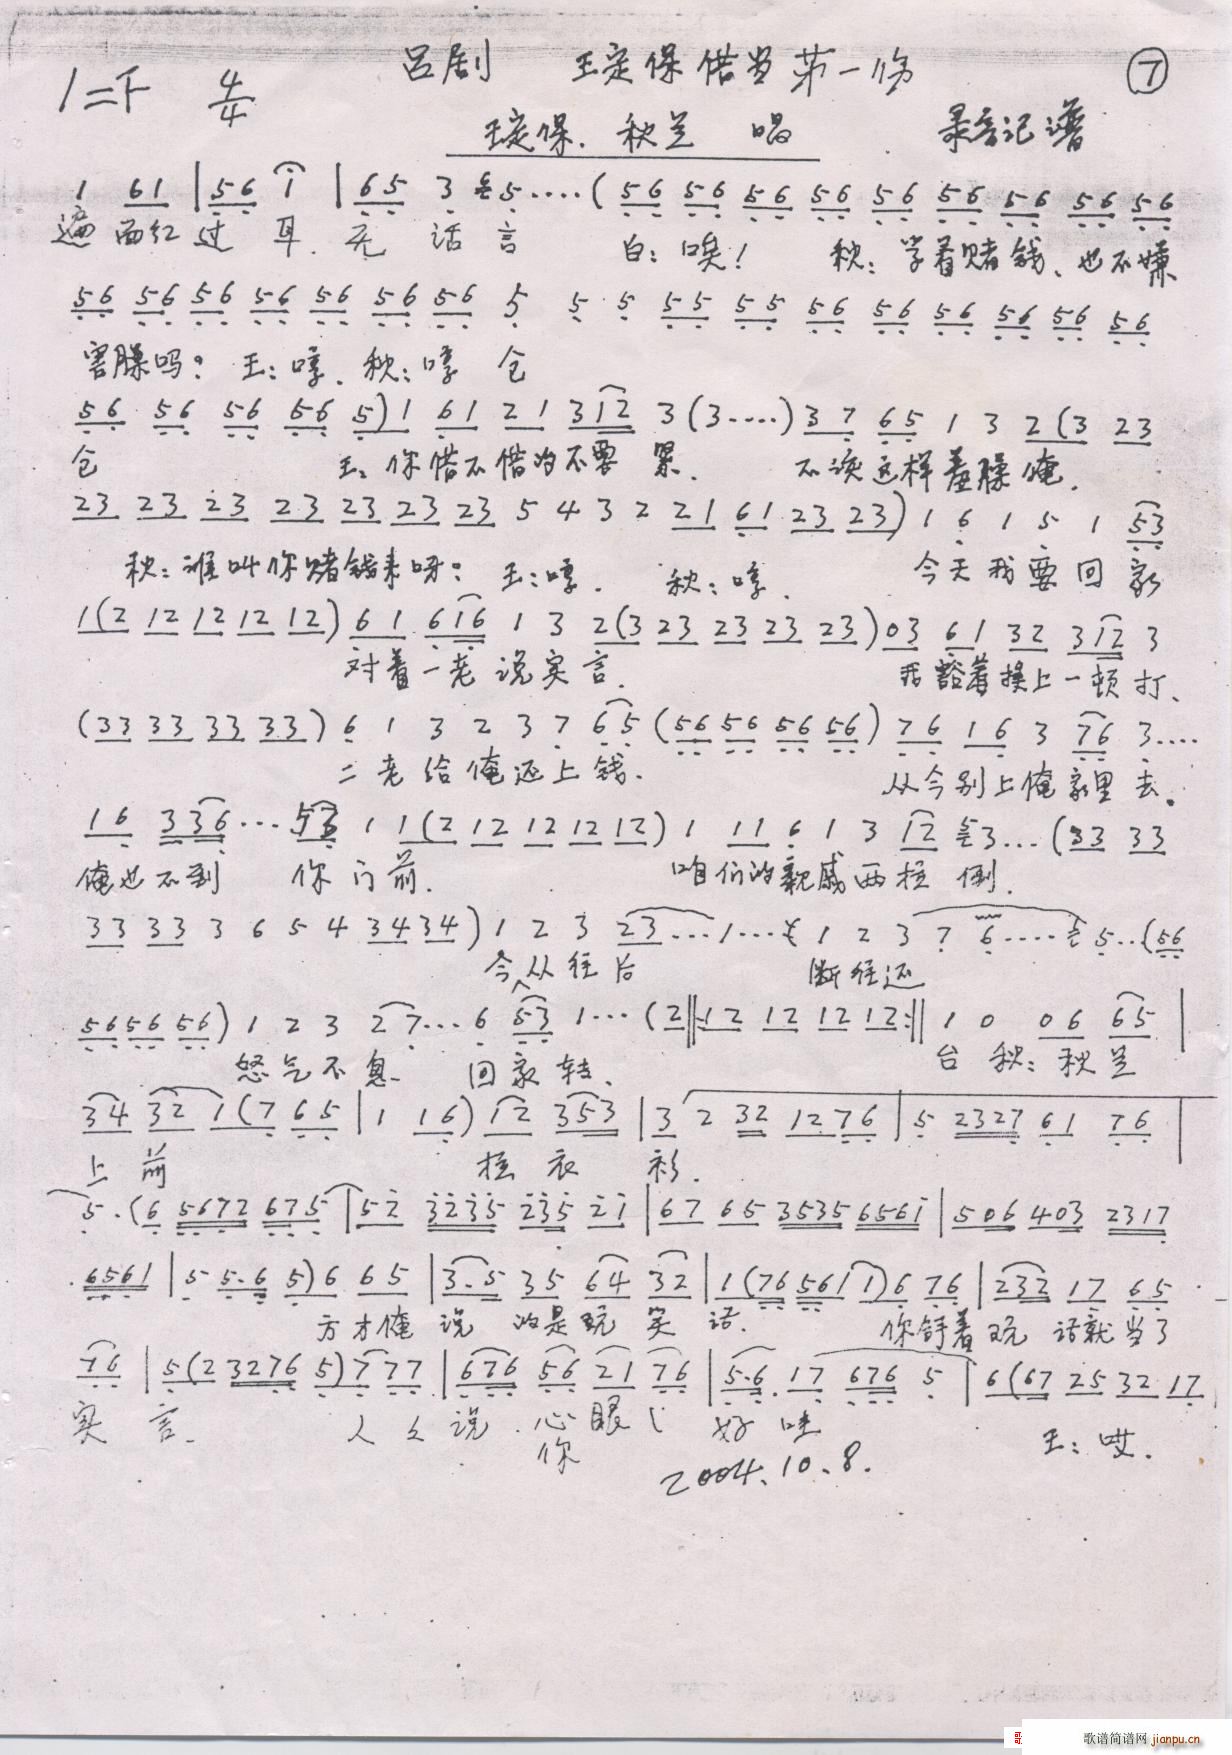 吕剧 王定保借当第一场 ⑦
1=F 4/4
王定保、秋兰 唱 录音记谱
1 61 | 56 i | 65 3 5····( 56 56 56 56 56 56 56 56 56
遍面红过耳、无话言 白:唉! 秋:学着赌钱、也不嫌
56 56 56 56 56 56 56 5 5 5 55 55 56 56 56 56 56 56
害臊吗? 王:哼、秋:哼 仓
56 56 56 56 5) 1 61 21 312 3 (3····) 37 65 1 3 2(3 23
仓 王:你借不借的不要紧、 不该这样羞臊俺、
23 23 23 23 23 23 23 5 4 3 2 21 61 23 23) 1 6 1 5 1 53
秋:谁叫你赌钱来呀? 王:哼、 秋:哼、 今天我要回家
1(2 12 12 12 12) 61 616 1 3 2(3 23 23 23 23) 03 61 32 312 3
对着一老说实言、 我豁着挨上一顿打、
(33 33 33 33) 6 1 3 2 3 7 65 (56 56 56 56) 76 16 3 76 3····
二老给俺还上钱、 从今别上俺家里去。
16 336··· 53 1 1(2 12 12 12 12) 1 11 6 1 3 12 3···(33 33
俺也不到 你门前、 咱们的亲戚两拉倒、
33 33 3 6 5 4 34 34) 1 2 3 23···1··· 1 2 3 7 6···· 5··(56
今从往后 断往还
56 56 56) 1 2 3 27··· 6 53 1···(2‖:12 12 12 12:‖ 1 0 06 65 |
怒气不息 回家转、 台 秋:秋兰
34 32 1(7 65 | 1 16) 12 353 | 3 2 32 12 76 | 5 2327 61 76 |
上前 拉衣 衫、
5·(6 5672 675 | 52 3235 235 21 | 67 65 3535 6561 | 506 403 2317
6561 | 5 5·6 5) 6 65 | 3·5 35 64 32 | 1(76 561 1) 6 76 | 232 17 65
方才俺 说的是玩笑话、 你舒着玩话就当了
76 | 5(2 3276 5) 7 77 | 676 56 21 76 | 5·6 17 676 5 | 6(67 25 32 17
实言、 人么说 心眼 好哇 王:哎、
你
2004.10.8.
歌谱简谱网 jianpu.cn